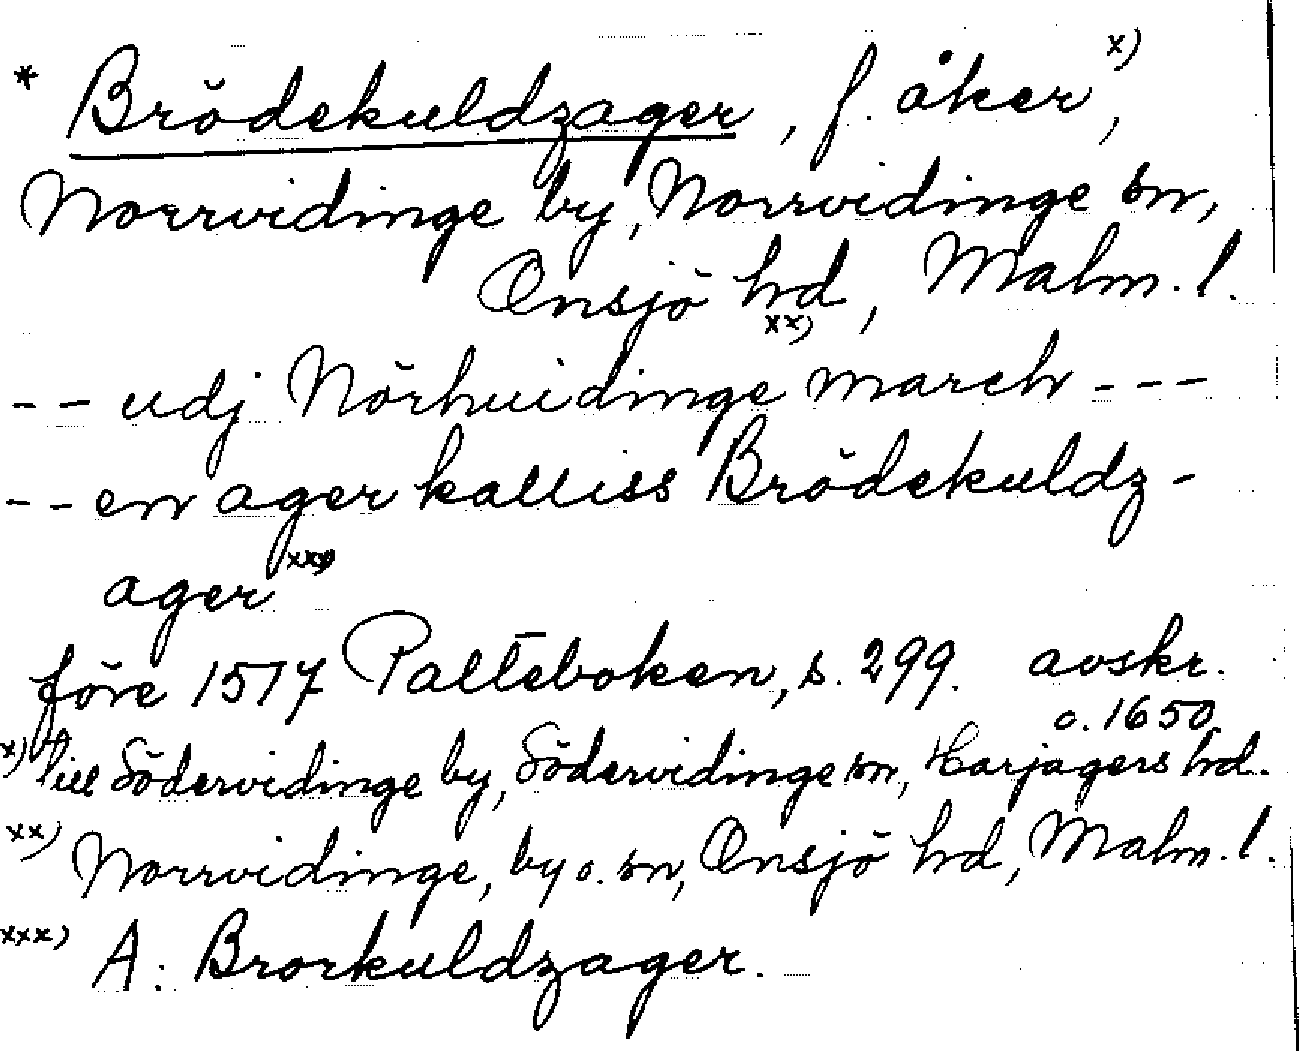 * Brödekuldzager, f. åker x),
Norrvidinge by, Norrvidinge sn,
Onsjö hd, Malm. l.
-- udj Nörhuidinge xx) march ---
-- en ager kalliss Brödekuldz-
ager xxx)
före 1517 Palteboken, s. 299. avskr.
c. 1650.
x) Till Södervidinge by, Södervidinge sn, Harjagers hd.
xx) Norrvidinge, by o. sn, Onsjö hd, Malm. l.
xxx) A: Brorkuldzager.